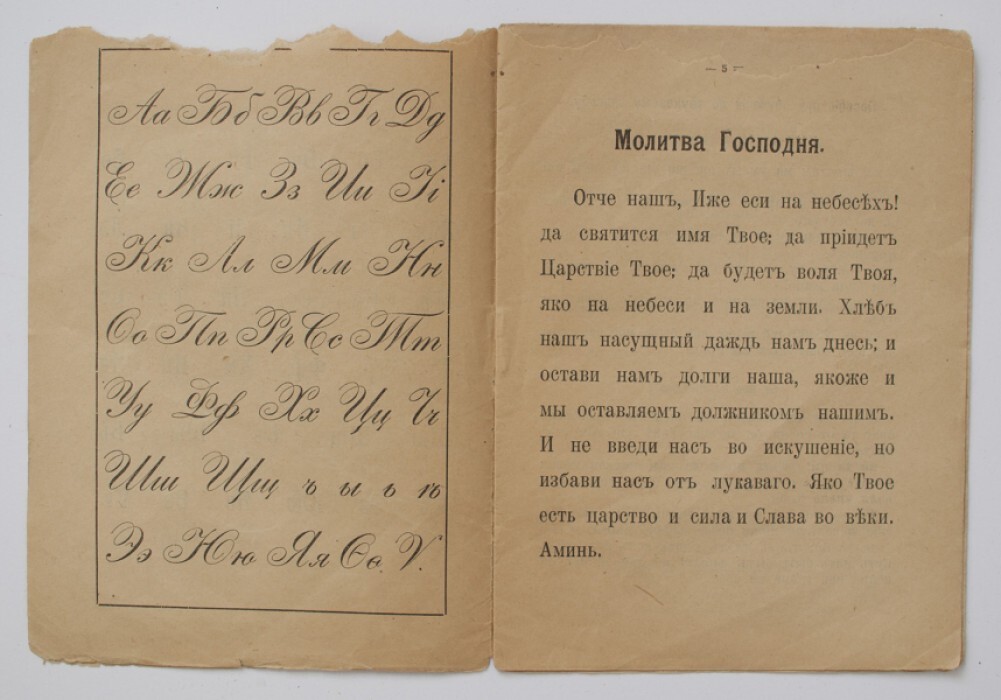 Аа Бб Вв Гг Дд
Ее Жж Зз Ии Іі
Кк Лл Мм Нн
Оо Пп Рр Сс Тт
Уу Фф Хх Цц Чч
Шш Щщ ъ ы ь ѣ
Ээ Юю Яя Ѳѳ Ѵ.
— 5 —
Молитва Господня.
Отче нашъ, Иже еси на небесѣхъ!
да святится имя Твое; да пріидетъ
Царствіе Твое; да будетъ воля Твоя,
яко на небеси и на земли. Хлѣбъ
нашъ насущный даждь намъ днесь; и
остави намъ долги наша, якоже и
мы оставляемъ должникомъ нашимъ.
И не введи насъ во искушеніе, но
избави насъ отъ лукаваго. Яко Твое
есть царство и сила и Слава во вѣки.
Аминь.